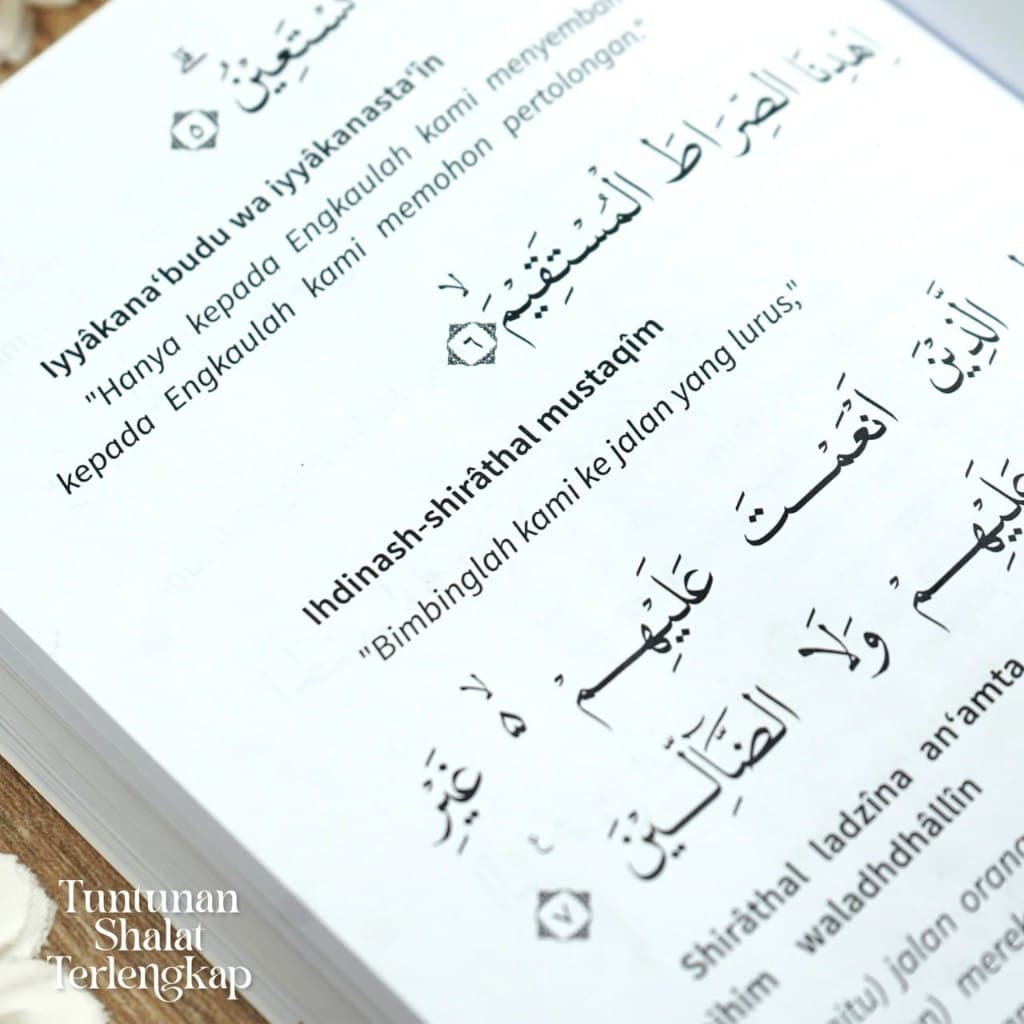 نَسْتَعِيْنُ ۗ ٥
Iyyâkana‘budu wa iyyâkanasta‘în
"Hanya kepada Engkaulah kami menyembah
kepada Engkaulah kami memohon pertolongan."
اِهْدِنَا الصِّرَاطَ الْمُسْتَقِيْمَ ۙ ٦
Ihdinash-shirâthal mustaqîm
"Bimbinglah kami ke jalan yang lurus,"
الَّذِيْنَ اَنْعَمْتَ عَلَيْهِمْ ەۙ غَيْرِ
عَلَيْهِمْ وَلَا الضَّاۤلِّيْنَ ࣖ ٧
Shirâthal ladzîna an‘amta
ihim waladhdhâllîn
itu) jalan orang
Tuntunan
Shalat
Terlengkap